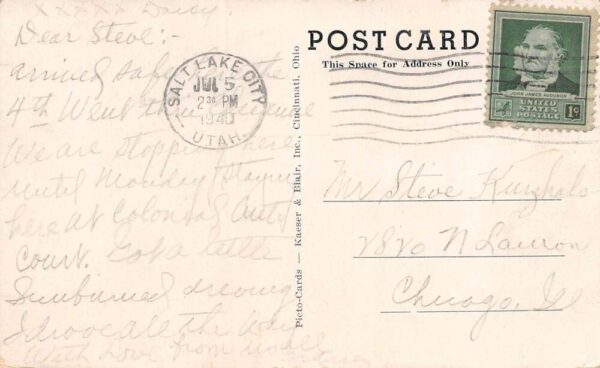 xxxxx Daisy
Dear Steve:-
arrived safe
4th Went thru
We are stopping here
until Monday staying
here at Colonial Auto
Court. Got a little
Sunburned driving
I drove all the way
With Love from us all
SALT LAKE CITY
JUL 5
2 30 PM
1940
UTAH
Picto-Cards — Kaeser & Blair, Inc., Cincinnati, Ohio
POST CARD
This Space for Address Only
JOHN JAMES AUDUBON
UNITED STATES
POSTAGE
1¢
Mr Steve
N
Chicago, Ill